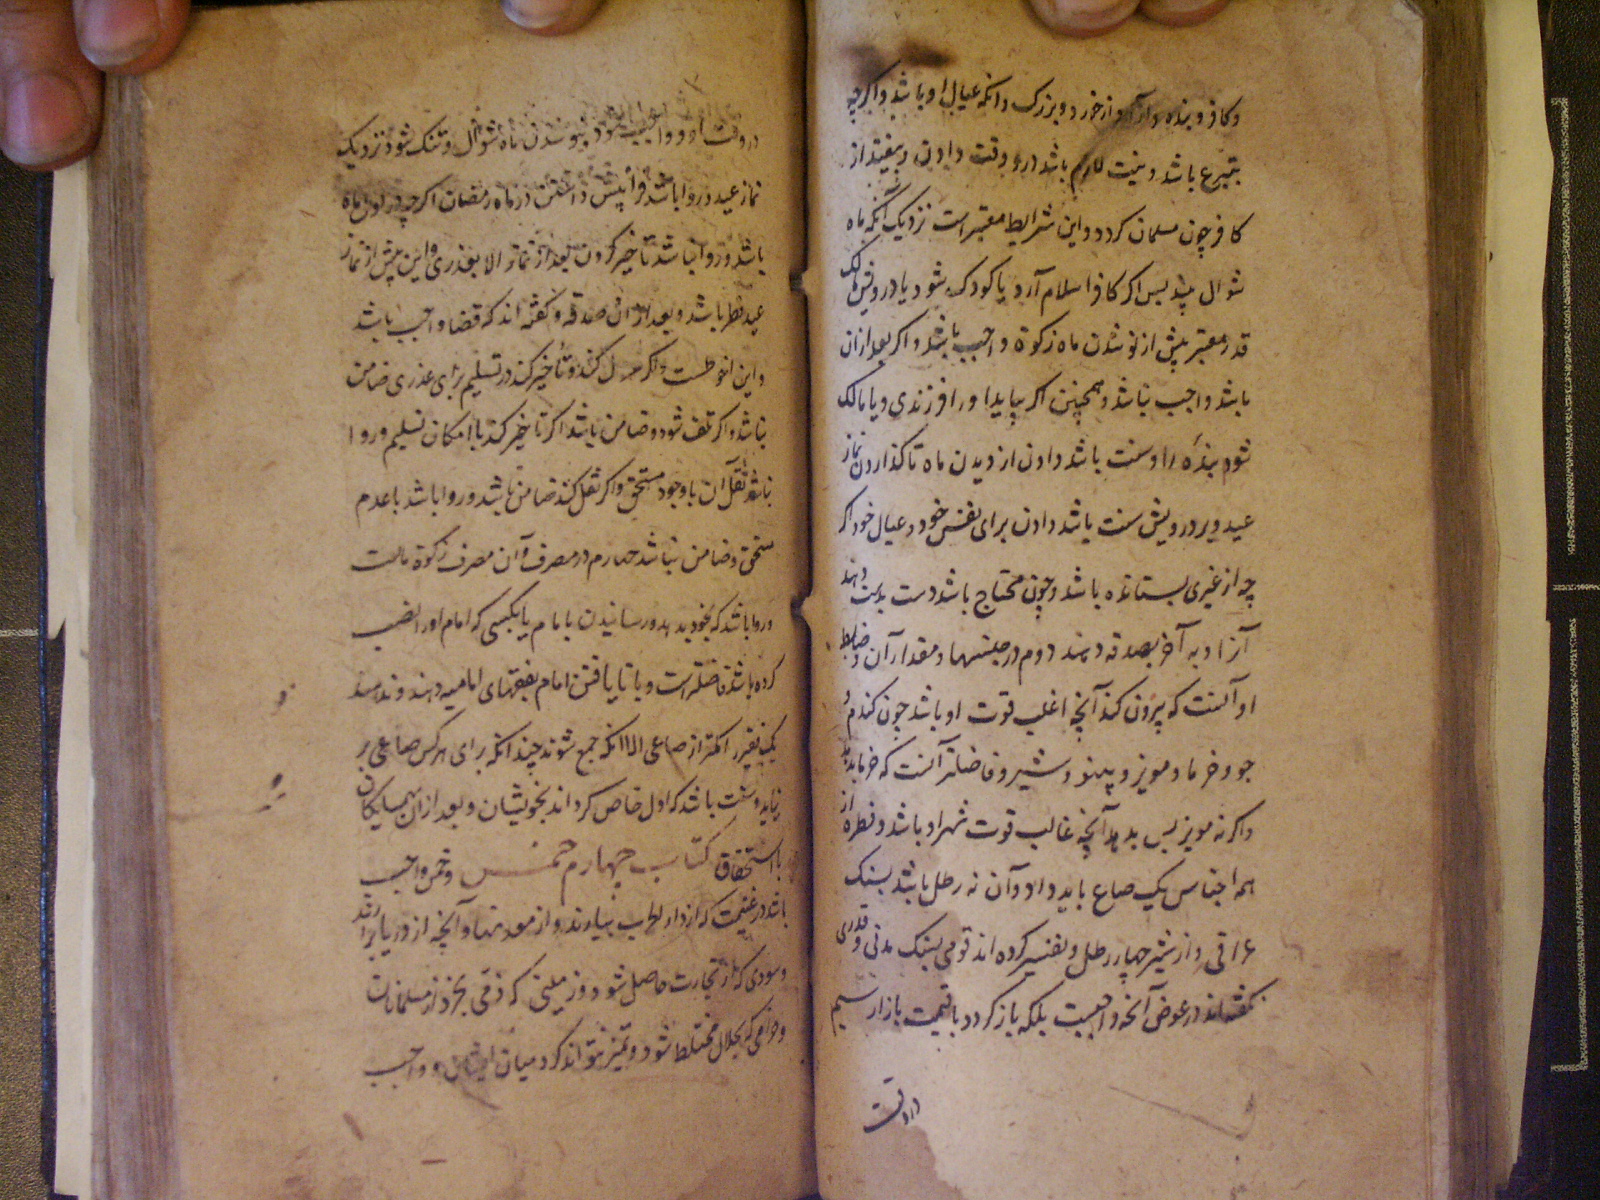 و کافر و بنده و آزاد و از خورد و بزرک و انکه عیال او باشد و اکرچه
بتبرع باشد و نیت لازم باشد درو وقت دادن و بیفتد از
کافر چون مسلمان کردد و این شرایط معتبر است نزدیک آنکه ماه
شوال بیند پس اکر کافر اسلام آرد یا کودک شود یا درویش مالک
قدر معتبر پیش از نو شدن ماه زکوة واجب باشد و اکر بعد ازان
باشد واجب نباشد و همچنین اکر بیاید او را فرزندی و یا مالک
شود بندهٔ را و سنت باشد دادن از دیدن ماه تا کذاردن نماز
عید و بر درویش سنت باشد دادن برای نفس خود و عیال خود اکر
چه از غیری بستانده باشد و چون محتاج باشد دست بدست دهند
آزاد به آخر بصدقه دهند دوم در جنسها و مقدار آن و ضابط
او آنست که بیرون کند آنچه اغلب قوت او باشد چون کندم و
جو و خرما و مویز و پینو و شیر و فاضلتر آنست که خرما بدهد
و اکر نه مویز پس بدهد آنچه غالب قوت شهر او باشد و فطره از
همه اجناس یک صاع باید داد و آن نه رطل باشد بسنک
عراقی و از شیر چهار رطل و تفسیر کرده اند قومی بسنک مدنی و قدری
نکفته اند در عوض آنچه واجبست بلکه باز کردد با قیمت بازار سیم
در وقت
در وقت او و واجب شود بنو شدن ماه شوال و تنک شود نزدیک
نماز عید و روا باشد فرا پیش داشتن در ماه رمضان اکرچه در اول ماه
باشد و روا نباشد تاخیر کردن بعد از نماز الا بعذری و این پیش از نماز
عید فطر باشد و بعد از آن صدقه و کفته اند که قضا واجب باشد
و این احوطست و اکر عزل کند و تاخیر کند در تسلیم برای عذری ضامن
نباشد و اکر تلف شود و ضامن باشد اکر تاخیر کند با امکان تسلیم و روا
نباشد نقل آن با وجود مستحق و اکر نقل کند ضامن باشد و روا باشد با عدم
مستحق و ضامن نباشد چهارم در مصرف و آن مصرف زکوة مالست
و روا باشد که بخود بدهد و رسانیدن بامام یا بکسی که امام او را نصب
کرده باشد فاضلتر است و با نا یافتن امام بفقهای امامیه دهند و ندهند
یک فقیر را کمتر از صاعی الا آنکه جمع شوند چندانکه برای هر کس صاعی بر
نیاید و سنت باشد که اول خاص کرداند بخویشان و بعد ازان بهمسایکان
با استحقاق کتاب چهارم خمس و خمس واجب
باشد در غنیمت که از دار الحرب بیاورند و از معدنها و آنچه از دریا برآرند
و سودی که از تجارت حاصل شود و زمینی که ذمی بخرد از مسلمانان
و حرامی که بحلال مختلط شود و تمیز نتواند کرد میان ایشان و واجب